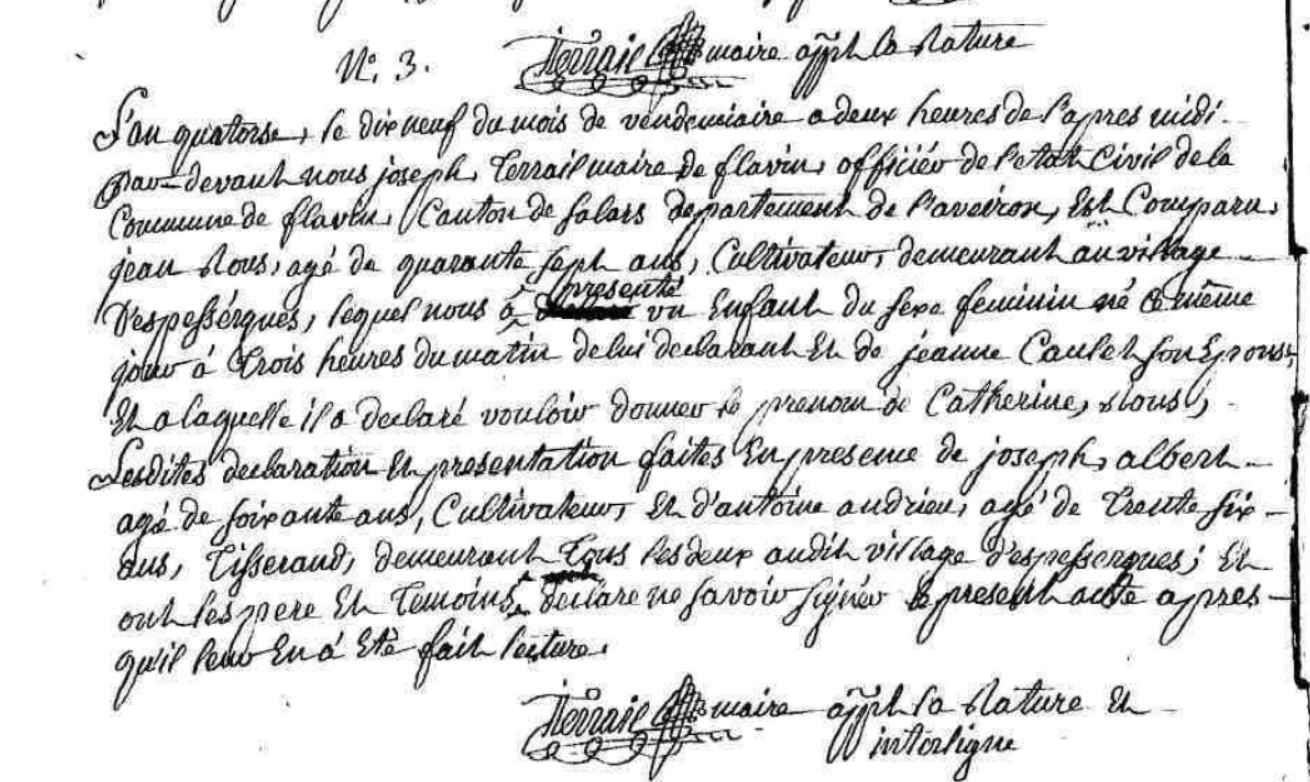 N.º 3. Terrail maire app.t la rature
L'an quatorse, le dix neuf du mois de vendemiaire a deux heures de l'apres midi
par-devant nous joseph, Terrail maire de flavin, officiér de l'etat Civil de la
Commune de flavin, Canton de salars departement de l'aveiron, Est Comparu,
jean Nous, agé de quarante sept ans, Cultivateur, demeurant au village
D'espessérgues, lequel nous à presenté un Enfant du sexe feminin né ce même
jour à Trois heures du matin de lui declarant Et de jeanne Caulet son Epouse,
Et a laquelle il a declaré vouloir donner le prenom de Catherine, Nous,
Lesdites declaration Et presentation faites En presence de joseph, albert
agé de soixante ans, Cultivateur, Et d'antoine andrieu, agé de Trente six
ans, Tisserand, demeurant Tous les deux audit village d'espessergues; Et
ont les pere Et Temoins declare ne savoir signér le present acte apres
qu'il leur En à Eté fait lecture.
Terrail maire app.t la rature Et
interligne